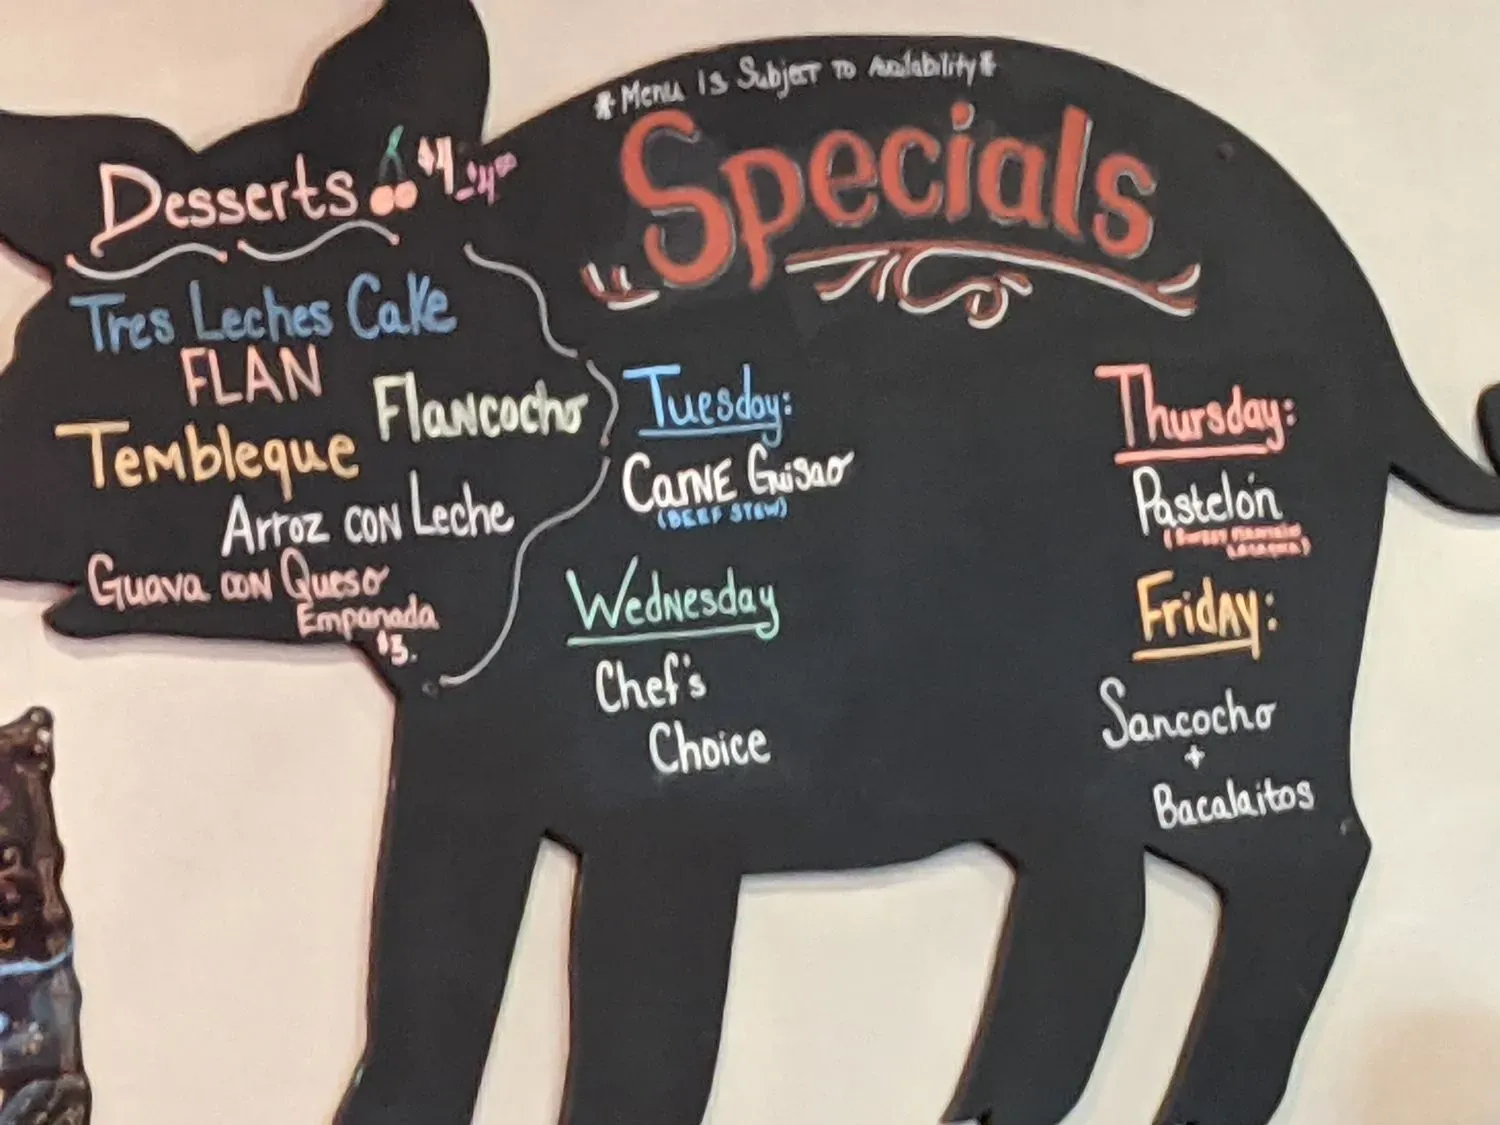 *Menu Is Subject To Availability*
Desserts $4
Tres Leches Cake
FLAN
Flancocho
Tembleque
Arroz con Leche
Guava con Queso
Empanada
$3.
Specials
Tuesday:
Carne Guisao
(BEEF STEW)
Wednesday
Chef's
Choice
Thursday:
Pastelón
(Sweet Plantain
Lasagna)
Friday:
Sancocho
+
Bacalaitos